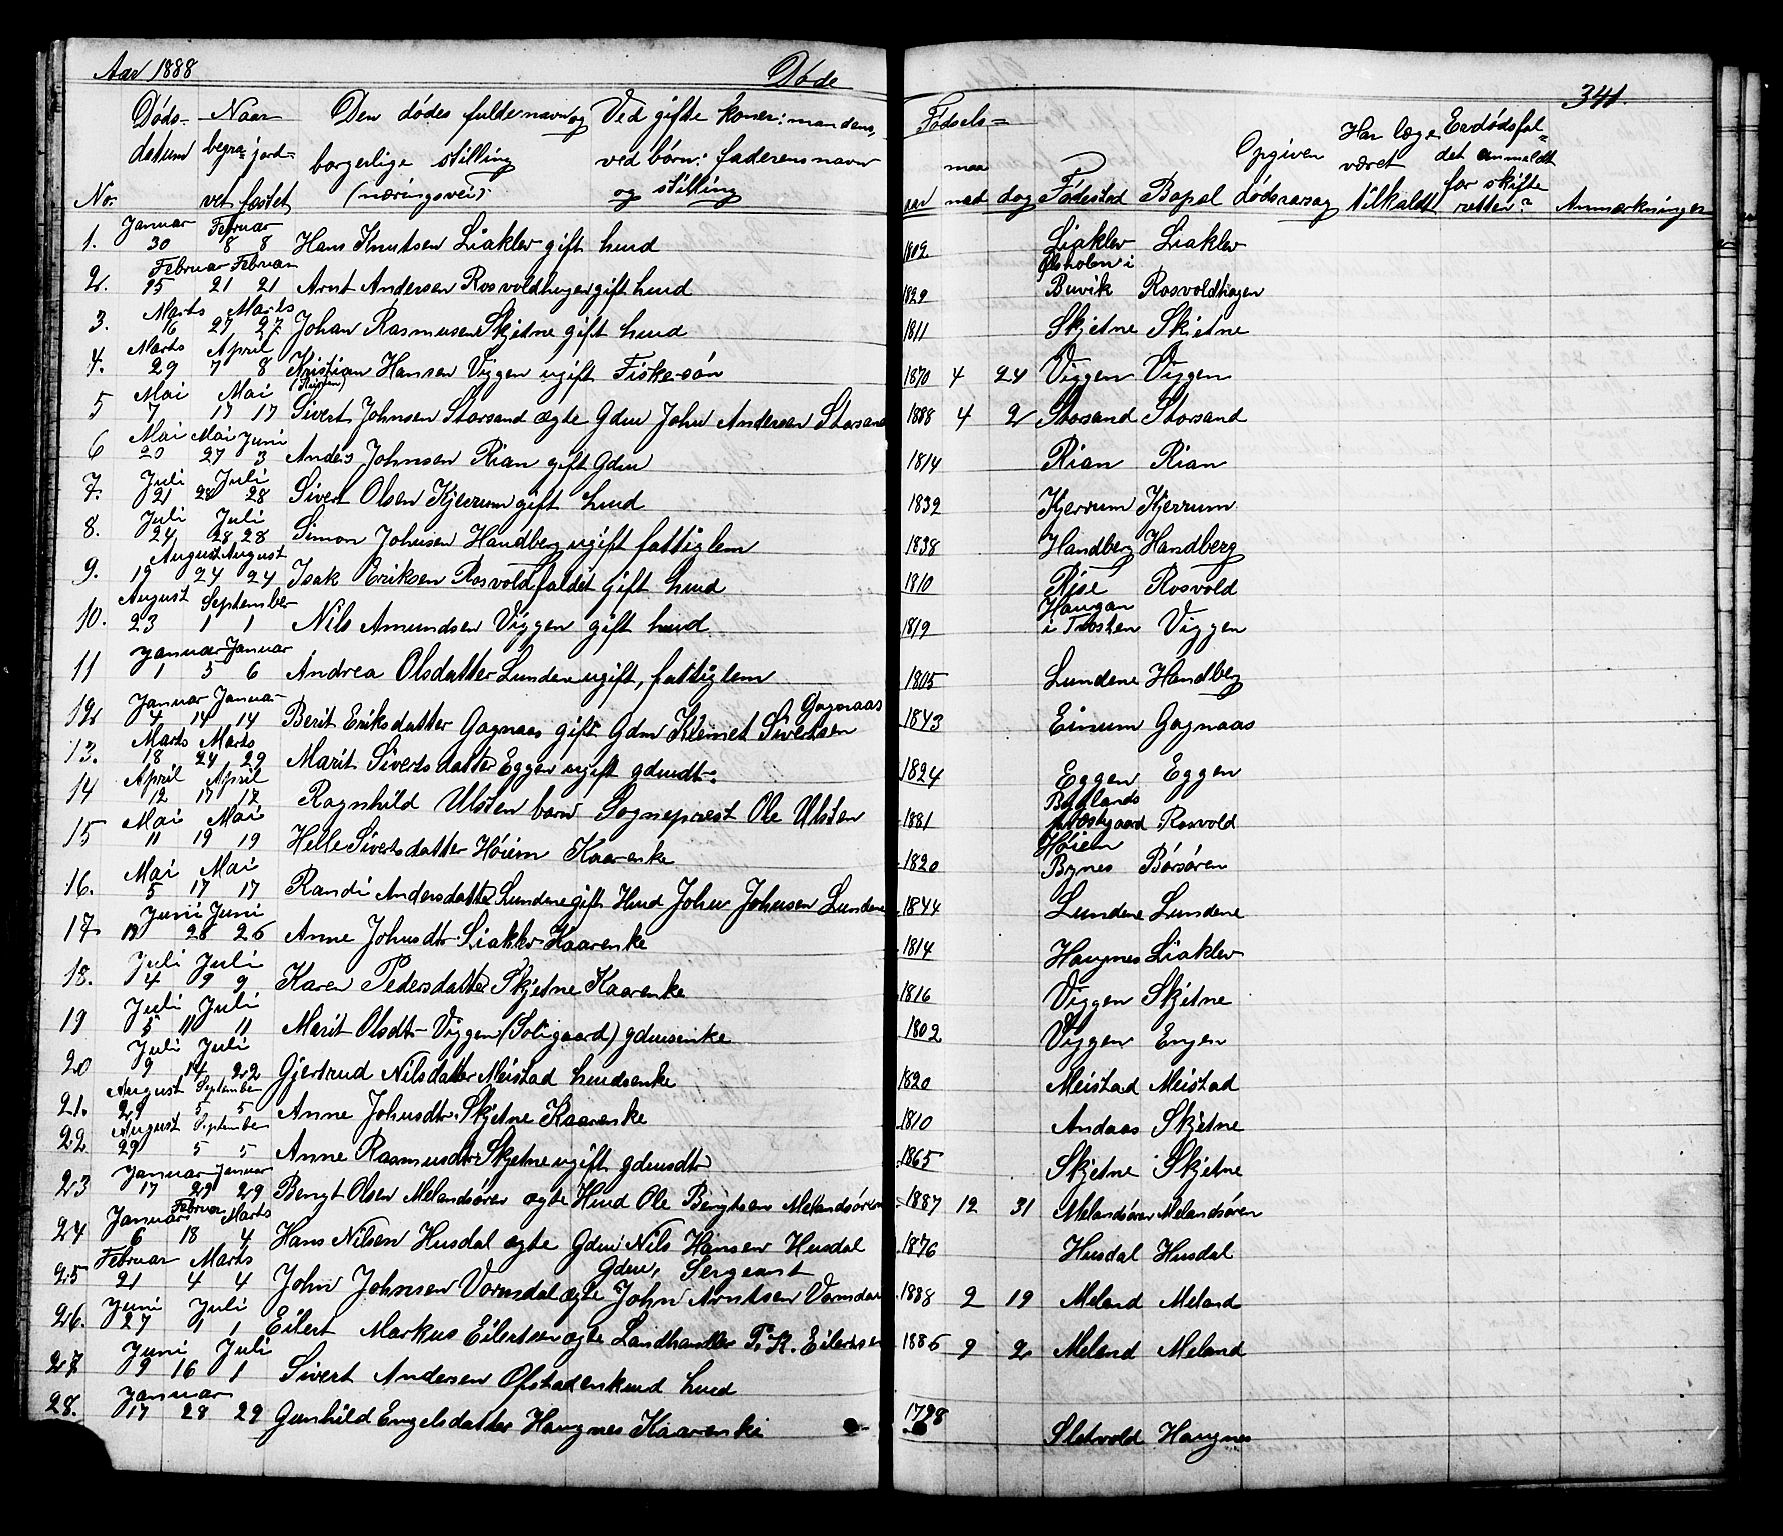 Aar 1888 Døde 341.
No. Dødsdatum Naar begravet jordfæstet Den dødes fulde navn og borgerlige stilling (næringsvei). Ved gifte koner: mandens, ved børn: faderens navn og stilling Fødsels= aar maanad dag Fødestad Bopæl Opgiven dødsaarsag Har læge været tilkaldt Er dødsfaldet anmeldt for skifteretten? Anmærkninger
1. Januar 30 Februar 8 8 Hans Knutsen Liaklev gift hmd 1809 Liaklev Liaklev
2. Februar 15 Februar 21 21 Arnt Andersen Rosvoldhagen gift hmd 1829 Ølsholm i Buvik Rosvoldhagen
3. Marts 16 Marts 27 27 Johan Rasmusen Skjetne gift hmd 1811 Skjetne Skjetne
4. Marts 29 April 7 8 Kristian Hansen Viggen ugift Fiske-søn 1870 4 24 Viggen Viggen
5 Mai 7 Mai 17 17 Sivert Johnsen Storsand ægte Gdm John Andersen Storsand 1888 4 2 Storsand Storsand
6 Mai 20 Mai 27 Juni 3 Anders Johnsen Rian gift Gdm 1814 Rian Rian
7. Juli 21 Juli 28 28 Sivert Olsen Kjerrum gift hmd 1832 Kjerrum Kjerrum
8. Juli 24 Juli 28 28 Simon Johnsen Handberg ugift fattiglem 1838 Handberg Handberg
9. August 19 August 24 24 Isak Eriksen Rosvoldfaldet gift hmd 1810 Rise Rosvold
10. August 23 September 1 1 Nils Amundsen Viggen gift hmd 1819 Haugan i Tristen Viggen
11 Januar 1 Januar 5 6 Andrea Olsdatter Lundene ugift, fattiglem 1805 Lundene Handberg
12 Januar 4 Januar 14 14 Berit Eriksdatter Gagnaas gift Gdm Klemet Sivertsen Gagnaas 1843 Einum Gagnaas
13. Marts 18 Marts 24 29 Marit Sivertsdatter Eggen ugift gdmdtr. 1824 Eggen Eggen
14 April 12 April 17 17 Ragnhild Ulsten barn Sogneprest Ole Ulsten 1881 præstgaard Rosvold
15 Mai 11 Mai 19 19 Helle Sivertsdatter Høiem Kaarenke 1820 Høiem Bynes Børsøren
16. Mai 5 Mai 17 17 Randi Andersdatter Lundene gift Hmd John Johnsen Lundene 1844 Lundene Lundene
17 Juni 19 Juni 28 26 Anne Johnsdtr Liaklev Kaarenke 1814 Haugnes Liaklev
18. Juli 4 Juli 9 9 Karen Pedersdatter Skjetne Kaarenke 1816 Viggen Skjetne
19 Juli 5 Juli 11 11 Marit Olsdtr Viggen (Soligaard) gdmsenke 1802 Viggen Engen
20 Juli 9 Juli 14 22 Gjertrud Nilsdatter Meistad hmdsenke 1820 Meistad Meistad
21. August 29 September 5 5 Anne Johnsdtr Skjetne Kaarenke 1810 Andaas Skjetne
22 August 29 September 5 5 Anne Rasmusdtr Skjetne ugift gdmsdtr 1865 Skjetne Skjetne
23 Januar 17 Januar 29 29 Bengt Olsen Melandsøren ægte Hmd Ole Bengtsen Melandsøren 1887 12 31 Melandsøren Melandsøren
24 Januar 6 Februar 18 Marts 4 Hans Nilsen Husdal ægte Gdm Nils Hansen Husdal 1876 Husdal Husdal
25 Februar 21 Marts 4 4 John Johnsen Vormdal ægte Gdm, Sergeant John Arntsen Vormdal 1888 2 19 Meland Meland
26. Juni 27 Juli 1 1 Eilert Markus Eilertsen ægte Landhandler P. K. Eilertsen 1886 9 2 Meland Meland
27 Juni 9 16 Juli 1 Sivert Andersen Ofstad enkmd hmd
28. Januar 17 28 29 Gunhild Engelsdatter Haugnes Kaarenke 1798 Sletvold Haugnes